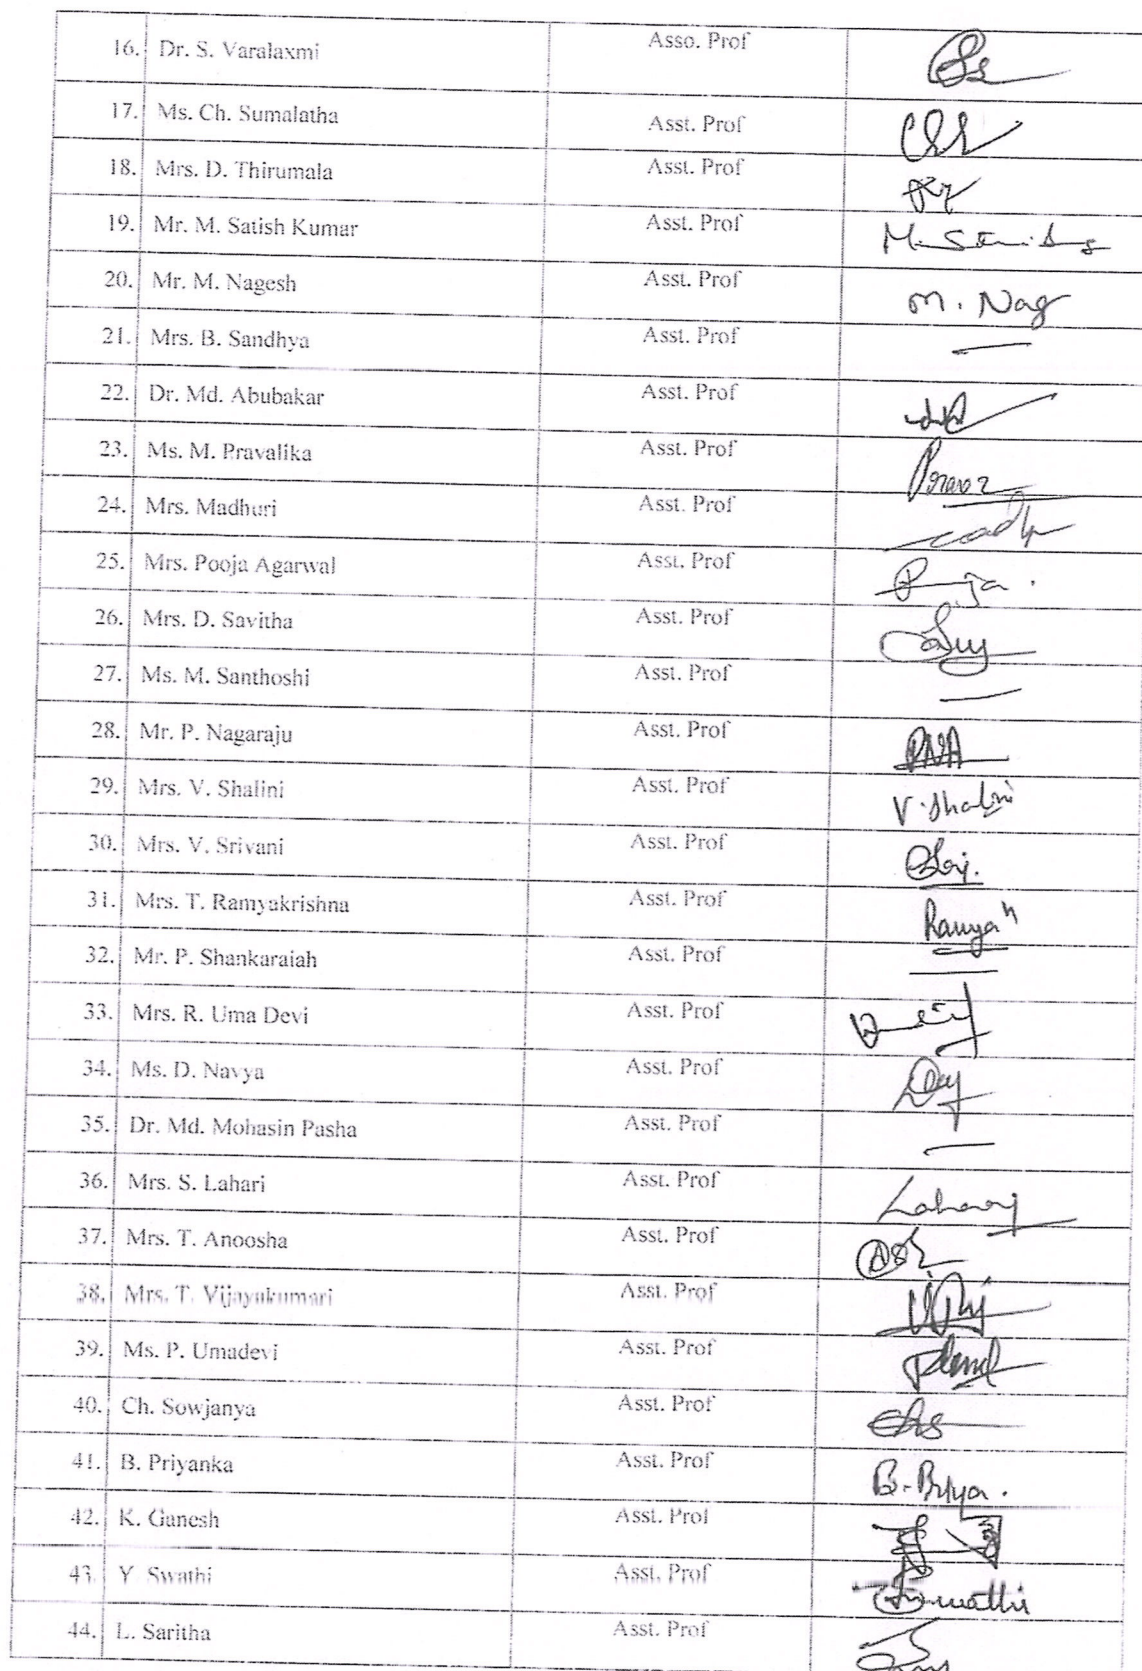 16. Dr. S. Varalaxmi Asso. Prof
17. Ms. Ch. Sumalatha Asst. Prof
18. Mrs. D. Thirumala Asst. Prof
19. Mr. M. Satish Kumar Asst. Prof
20. Mr. M. Nagesh Asst. Prof M. Nag
21. Mrs. B. Sandhya Asst. Prof
22. Dr. Md. Abubakar Asst. Prof
23. Ms. M. Pravalika Asst. Prof
24. Mrs. Madhuri Asst. Prof
25. Mrs. Pooja Agarwal Asst. Prof
26. Mrs. D. Savitha Asst. Prof
27. Ms. M. Santhoshi Asst. Prof
28. Mr. P. Nagaraju Asst. Prof
29. Mrs. V. Shalini Asst. Prof V. Shalini
30. Mrs. V. Srivani Asst. Prof
31. Mrs. T. Ramyakrishna Asst. Prof Ramya
32. Mr. P. Shankaraiah Asst. Prof
33. Mrs. R. Uma Devi Asst. Prof
34. Ms. D. Navya Asst. Prof
35. Dr. Md. Mohasin Pasha Asst. Prof
36. Mrs. S. Lahari Asst. Prof
37. Mrs. T. Anoosha Asst. Prof
38. Mrs. T. Vijayakumari Asst. Prof
39. Ms. P. Umadevi Asst. Prof
40. Ch. Sowjanya Asst. Prof
41. B. Priyanka Asst. Prof B. Priya.
42. K. Ganesh Asst. Prof
43. Y Swathi Asst. Prof
44. L. Saritha Asst. Prof